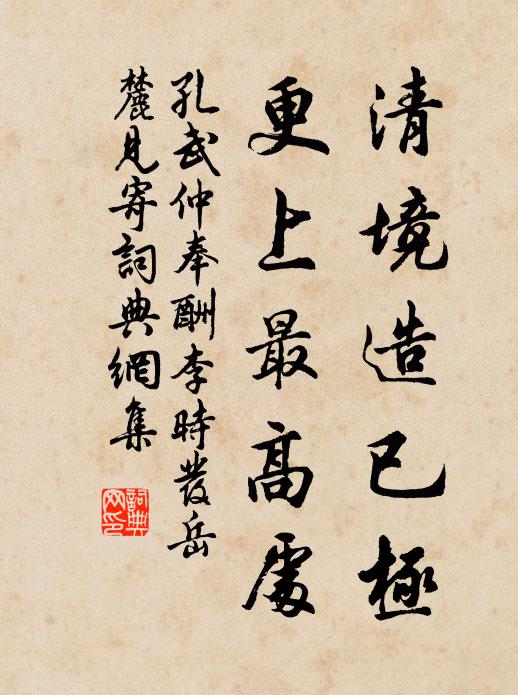 清境造已極
更上最高處
孔武仲奉酬李時發岳
麓見寄詞典網集
詞典
网印